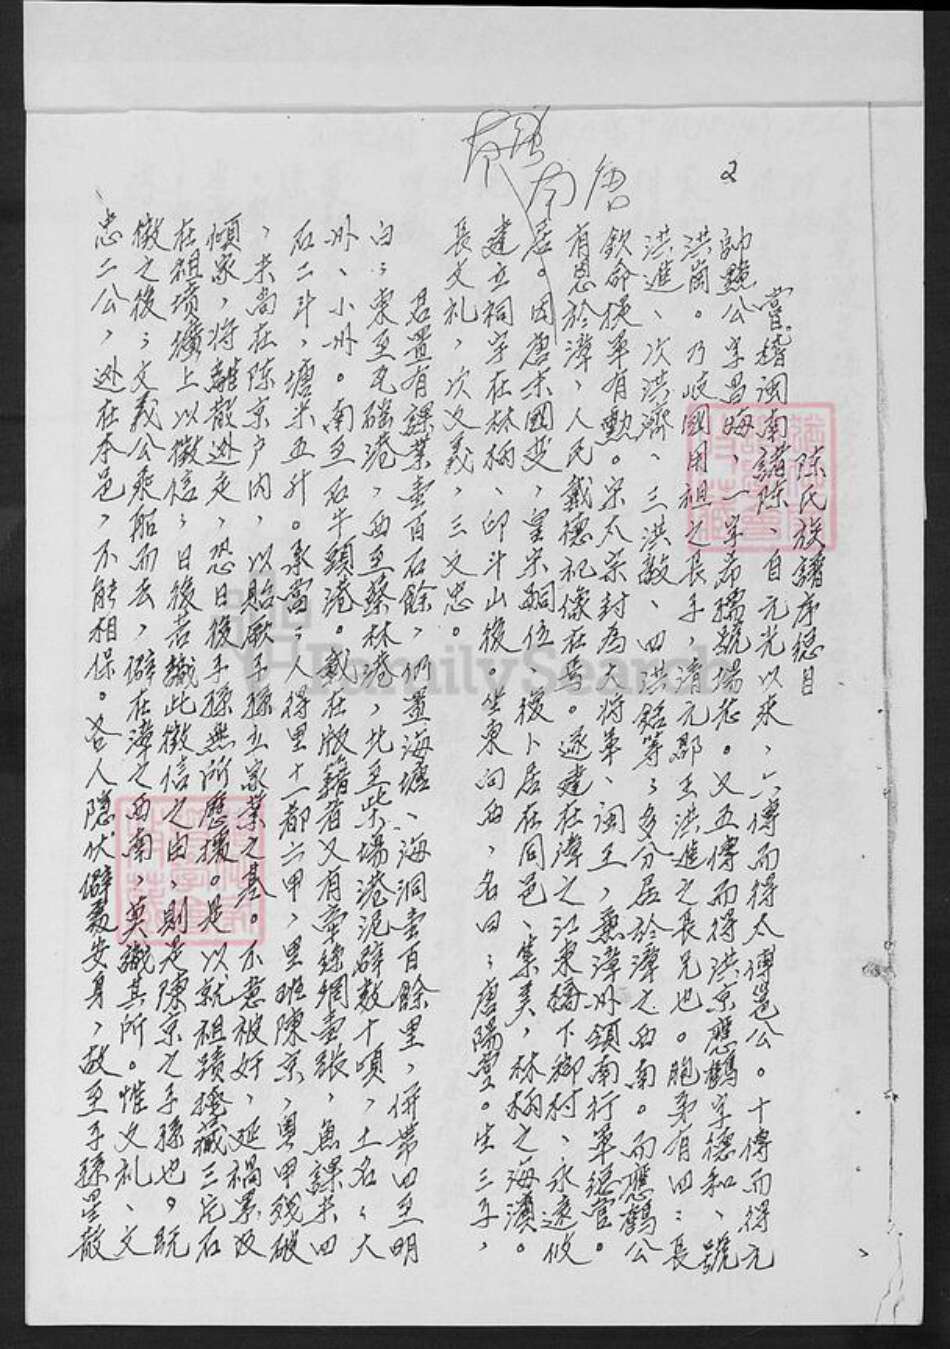 2
南唐
陳氏族譜序總目
嘗稽閩南諸陳、自元光以來、六傳而得太傅邕公。十傳而得元
帥魏公字昌海、一字希孺號場老。又五傳而得洪京應鶴字德和、號
洪崗。乃岐國用祖之長子，清元郡王洪進之長兄也。胞弟有四：長
洪進、次洪濟、三洪敵、四洪銘等；多分居於漳之西南。而應鶴公
欽命捷軍有勳。宋太宗封為大將軍、閩王，兼漳州領南行軍總管。
有恩於漳，人民戴德祀像在焉。遂建在漳之江東橋下鄉村、永遠攸
居。因唐末國变，皇宋嗣位。後卜居在同邑、集美，林柄之海濱。
建立祠宇在林柄、印斗山後。坐東向西，名曰：唐陽堂。生三子，
長文礼，次文義，三文忠。
君置有課業壹百石餘，仍置海壖、海洞壹百餘里，併帶四至明
白：東至瓦硞港，西至蔡林港，北至柴場港泥辟数十頃，土名：大
州、小州。南至石牛頭港。載在版籍者又有牵綘網壹張，魚課米四
石二斗，塘米五升。承當：人得里十一都六甲，里班陳京，奧甲残破
，米尚在陳京户内，以貽厥子孫立家業之基。不意被奸，延禍累及
傾家，将離散逃走，恐日後子孫無所應據。是以就祖蹟掩藏三完石
在祖墳壙上以徵信；日後若識此徵信之由，則是陳京之子孫也。既
徵之後；文義公乘船而去，僻在漳之西南，莫識其所。惟文礼、文
忠二公，逃在本邑，不能相保。各人隱伏僻裏安身，故至子孫星散
FamilySearch